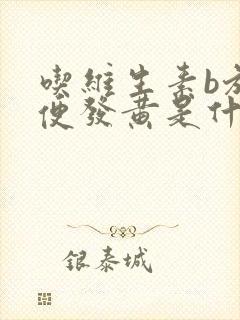 喫維生素b方
便發黃是什
銀泰城